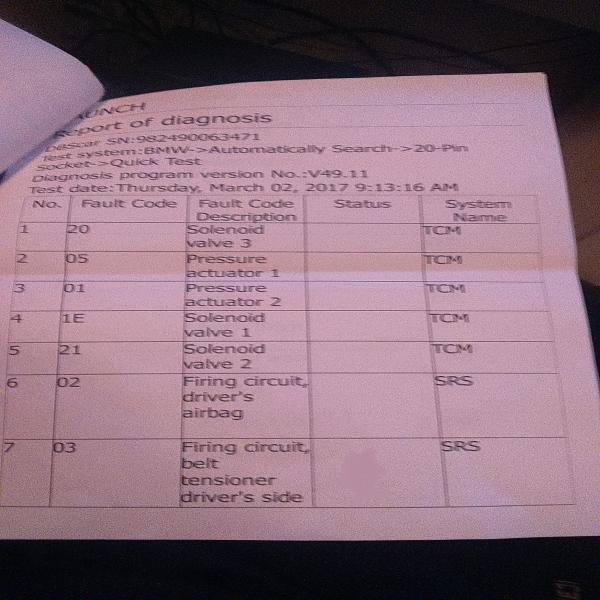 AUNCH
Report of diagnosis
DBScar SN:982490063471
Test system:BMW->Automatically Search->20-Pin
Socket->Quick Test
Diagnosis program version No.:V49.11
Test date:Thursday, March 02, 2017 9:13:16 AM
No. Fault Code Fault Code Description Status System Name
1 20 Solenoid valve 3 TCM
2 05 Pressure actuator 1 TCM
3 01 Pressure actuator 2 TCM
4 1E Solenoid valve 1 TCM
5 21 Solenoid valve 2 TCM
6 02 Firing circuit, driver's airbag SRS
7 03 Firing circuit, belt tensioner driver's side SRS